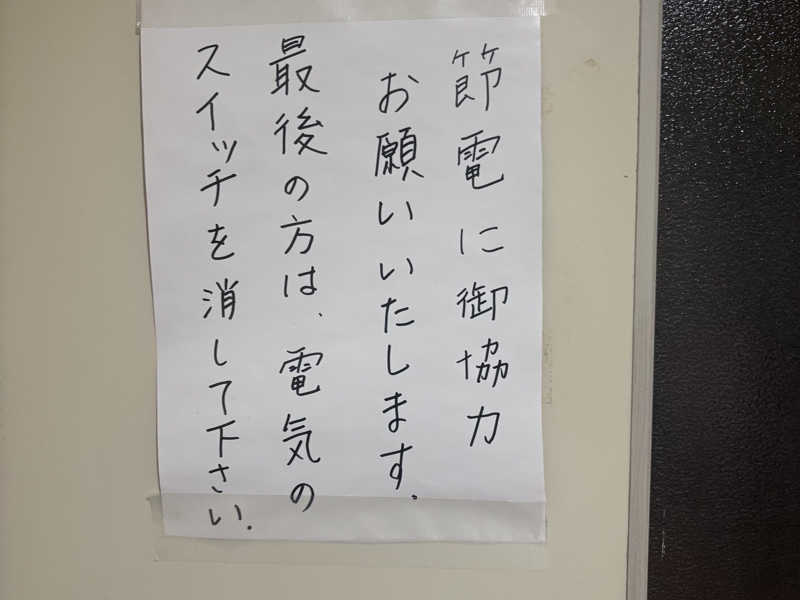 節電に御協力
お願いいたします.
最後の方は、電気の
スイッチを消して下さい.